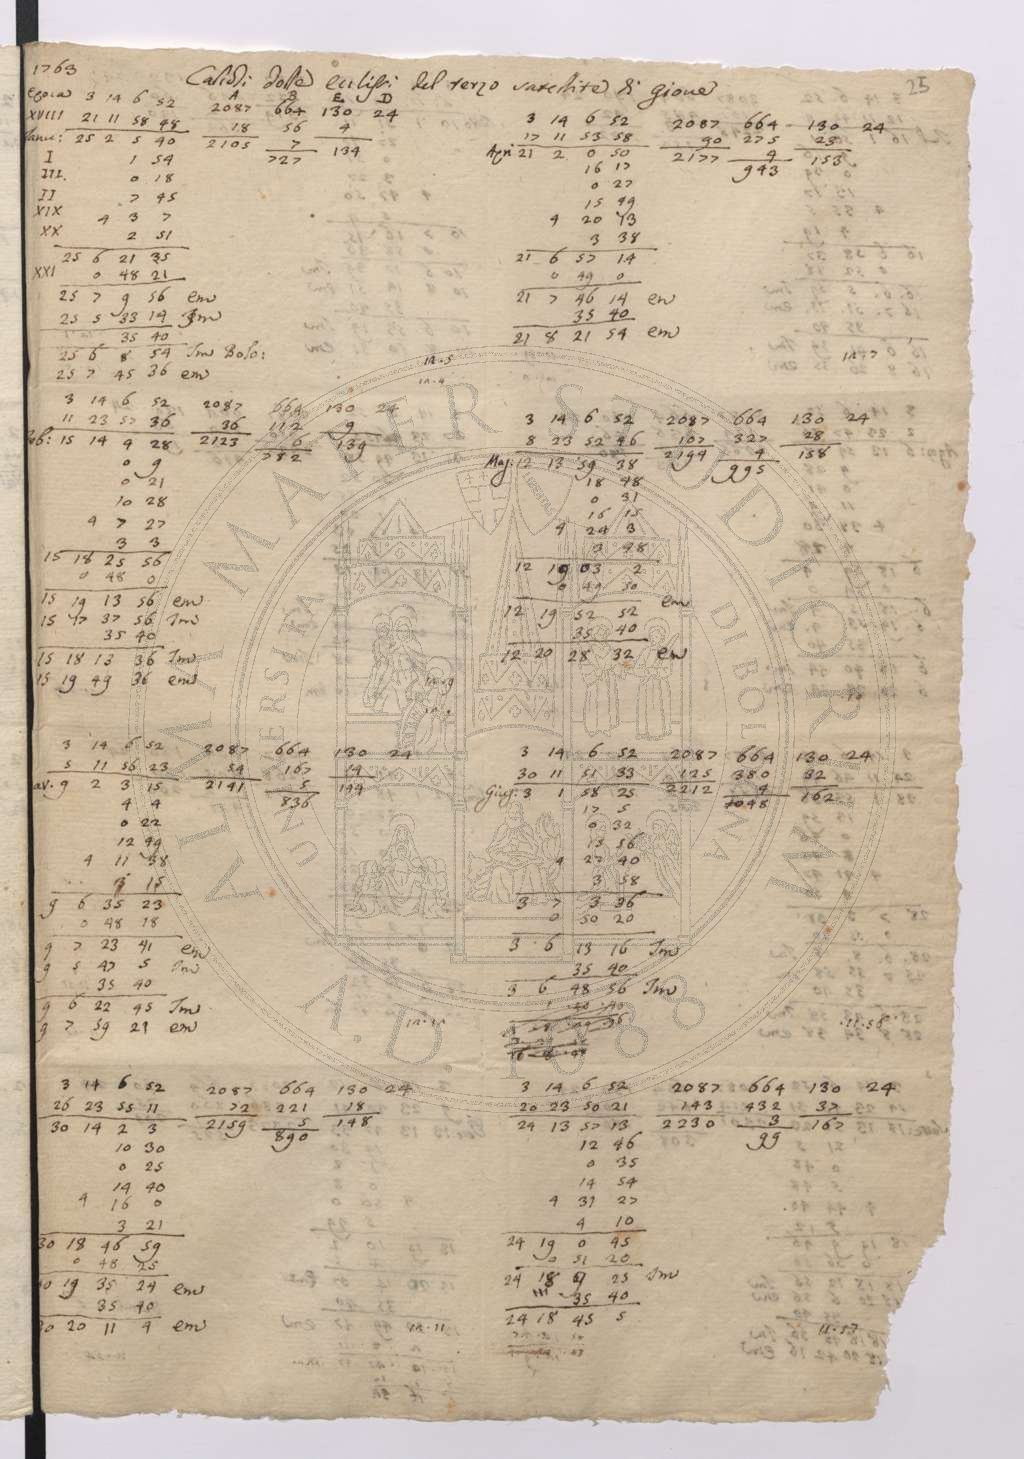 1763
25
Calcoli delle eclissi del terzo satellite di Giove
A B E D
epoca 3 14 6 52 2087 664 130 24
XVIII 21 11 58 48 18 56 4
Janu: 25 2 5 40 2105 7 134
727
I 1 54
III. 0 18
II 7 45
XIX 4 3 7
XX 2 51
25 6 21 35
XXI 0 48 21
25 7 9 56 em
25 5 33 14 Im
35 40
25 6 8 54 Im Bolo:
25 7 45 36 em
3 14 6 52 2087 664 130 24
11 23 57 36 36 112 9
Feb: 15 14 4 28 2123 6 139
782
0 9
0 21
10 28
4 7 27
3 3
15 18 25 56
0 48 0
15 19 13 56 em
15 17 37 56 Im
35 40
15 18 13 36 Im
15 19 49 36 em
3 14 6 52 2087 664 130 24
5 11 56 23 54 167 14
9 2 3 15 2141 5 144
836
4 4
0 22
12 49
4 11 38
3 15
9 6 35 23
0 48 18
9 7 23 41 em
9 5 47 5 Im
35 40
9 6 22 45 Im
9 7 59 21 em
3 14 6 52 2087 664 130 24
26 23 55 11 72 221 18
30 14 2 3 2159 5 148
890
10 30
0 25
14 40
4 16 0
3 21
30 18 46 59
0 48 25
30 19 35 24 em
35 40
30 20 11 4 em
3 14 6 52 2087 664 130 24
17 11 53 58 90 275 23
Apri 21 2 0 50 2177 4 153
943
16 17
0 27
15 49
4 20 13
3 38
21 6 57 14
0 49 0
21 7 46 14 em
35 40
21 8 21 54 em
3 14 6 52 2087 664 130 24
8 23 52 46 107 327 28
Mag: 12 13 59 38 2194 4 158
995
18 48
0 31
16 15
4 24 3
3 48
12 19 03 2
0 49 50
12 19 52 52 em
35 40
12 20 28 32 em
3 14 6 52 2087 664 130 24
30 11 51 33 125 380 32
Giug: 3 1 58 25 2212 4 162
1048
17 5
0 32
15 56
4 27 40
3 58
3 7 3 36
0 50 20
3 6 13 16 Im
35 40
3 6 48 56 Im
3 14 6 52 2087 664 130 24
20 23 50 21 143 432 37
24 13 57 13 2230 3 167
99
12 46
0 35
14 54
4 31 27
4 10
24 19 0 45
0 51 20
24 18 9 25 Im
35 40
24 18 45 5
ALMA MATER STUDIORUM
UNIVERSITAS DI BOLOGNA
A.D. 1088